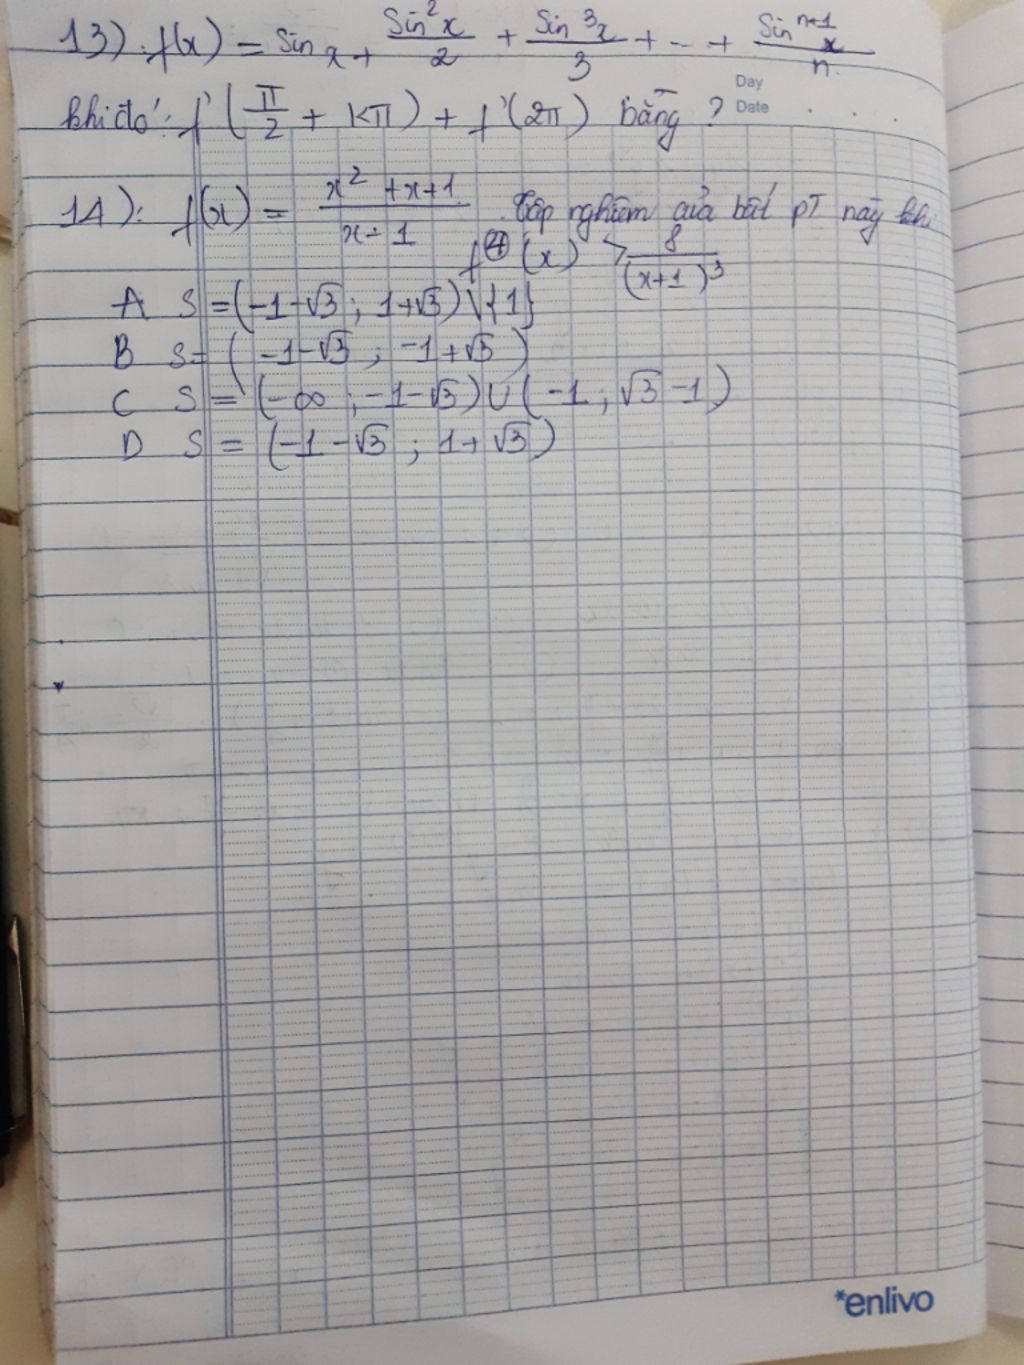 13) f(x) = Sin x + Sin²x/2 + Sin³x/3 + ... + Sinⁿ⁺¹x/n
Day
Date
khi đó: f'(π/2 + kπ) + f'(2π) bằng ?
14): f(x) = x² + x + 1 / x - 1 Tập nghiệm của bất pT này khi
f⁽⁴⁾(x) > 8/(x+1)³
A S = (-1-√3 ; 1+√3) \ {1}
B S = (-1-√3 ; -1+√3)
C S = (-∞ ; -1-√3) ∪ (-1 ; √3 -1)
D S = (-1-√3 ; 1+√3)
*enlivo